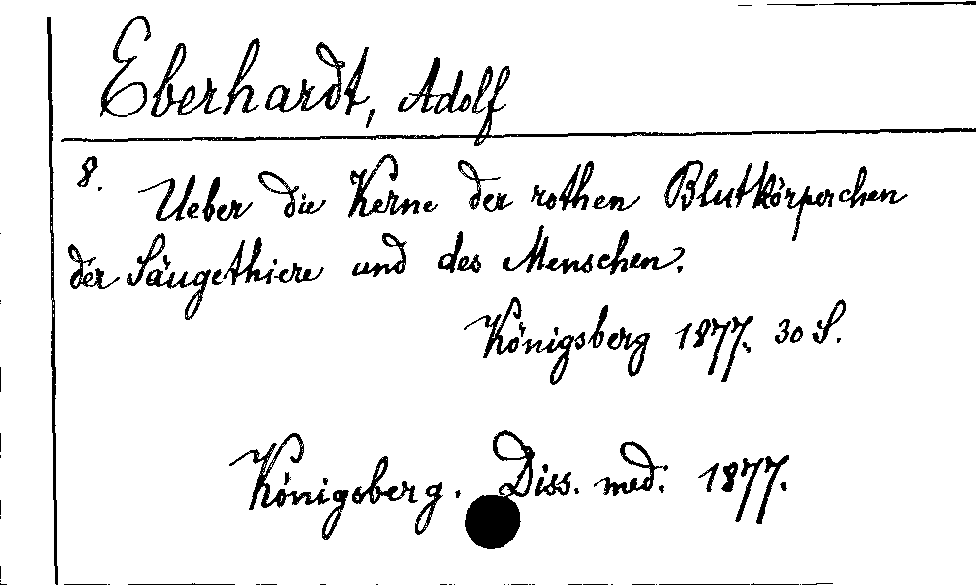 Eberhardt, Adolf
8. Ueber die Kerne der rothen Blutkörperchen
der Säugethiere und des Menschen.
Königsberg 1877. 30 S.
Königsberg. Diss. med. 1877.